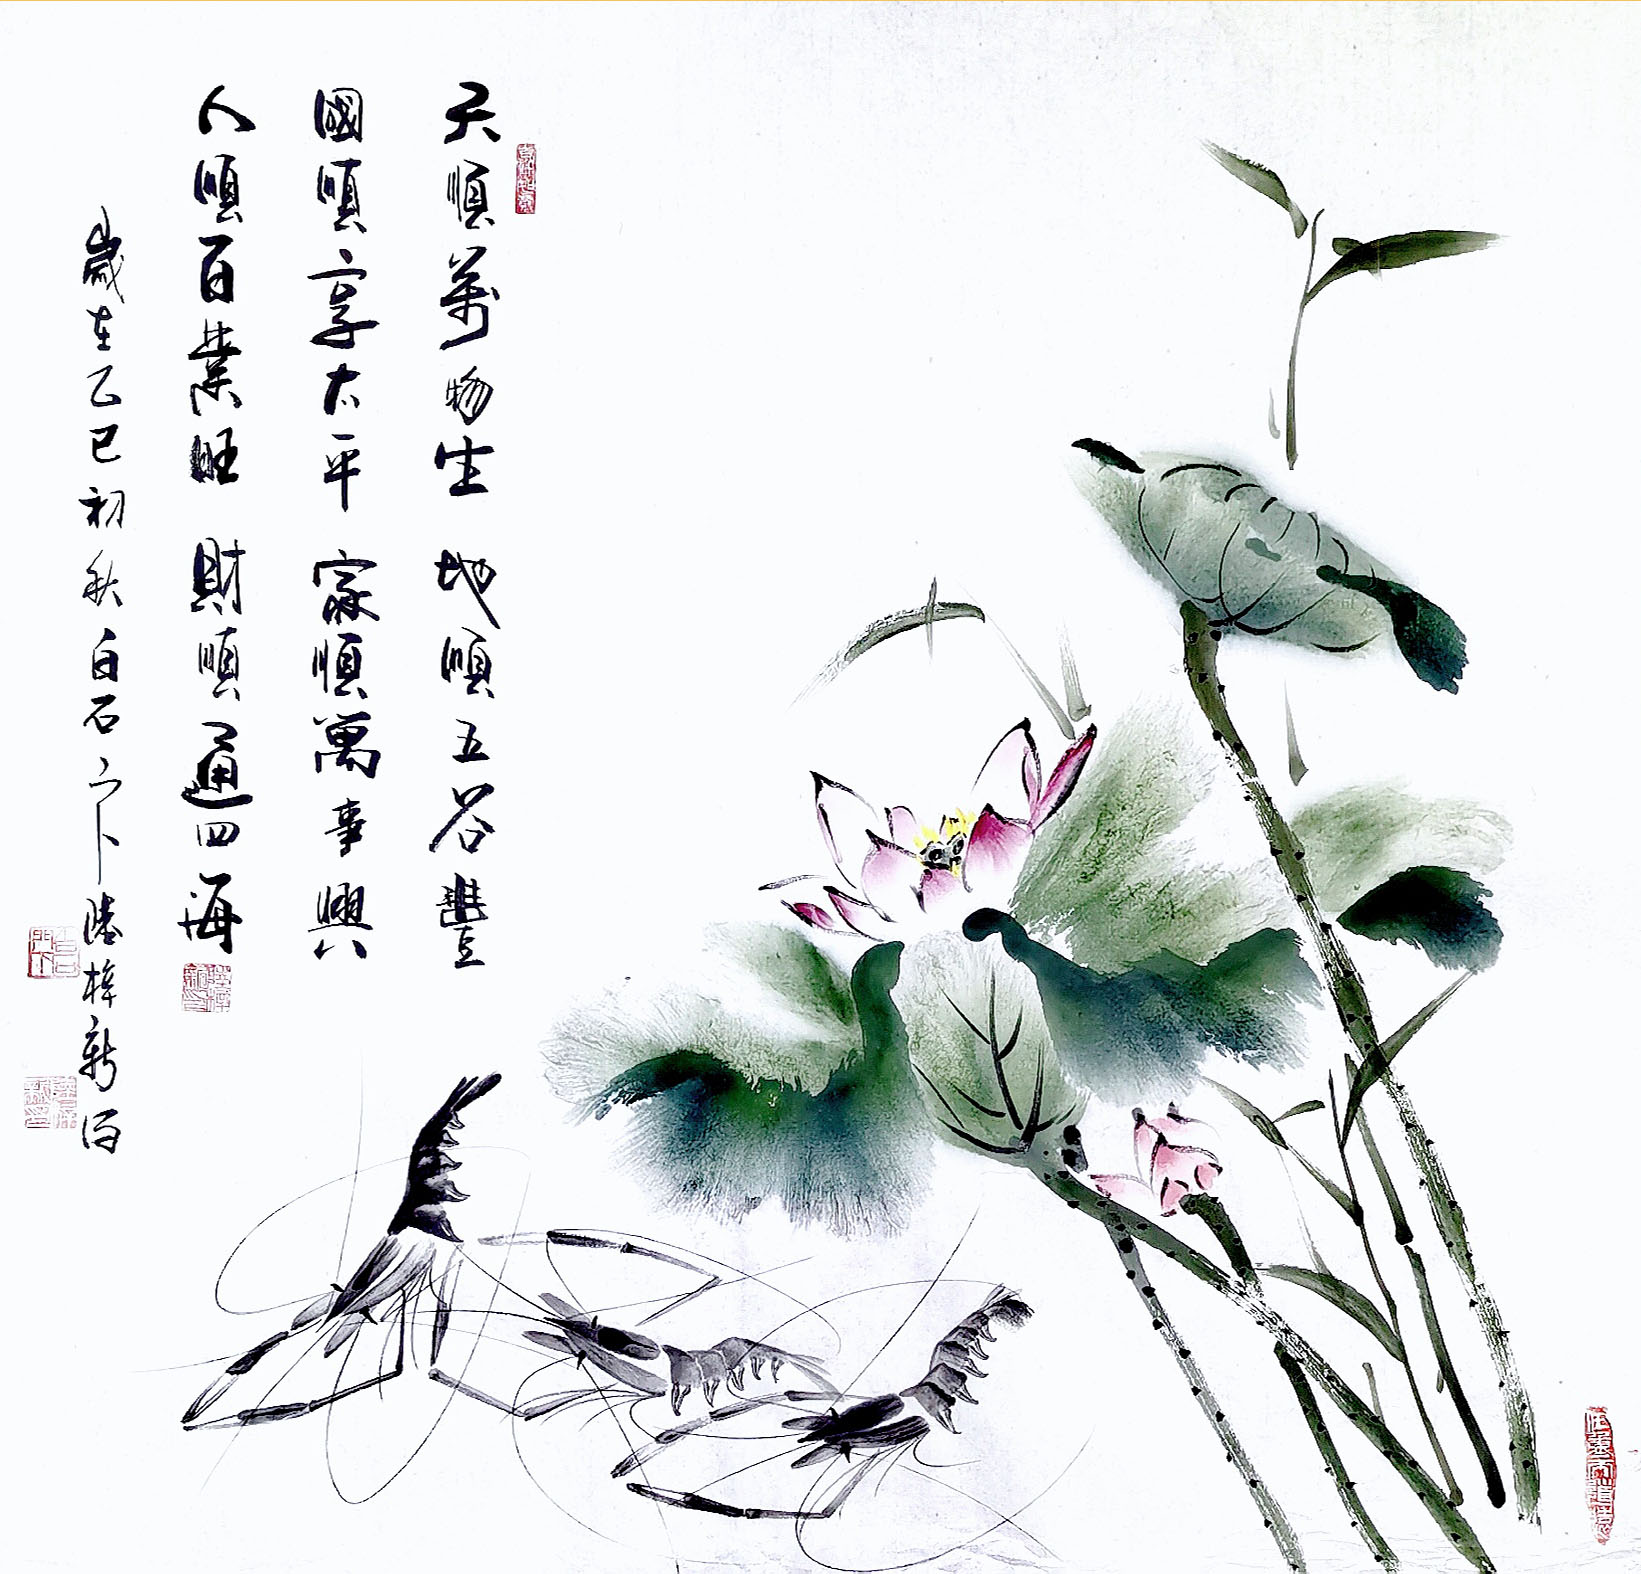 天順萬物生 地順五谷豐
國順享太平 家順萬事興
人順百業旺 財順通四海
歲在乙巳初秋白石门下陸梓新